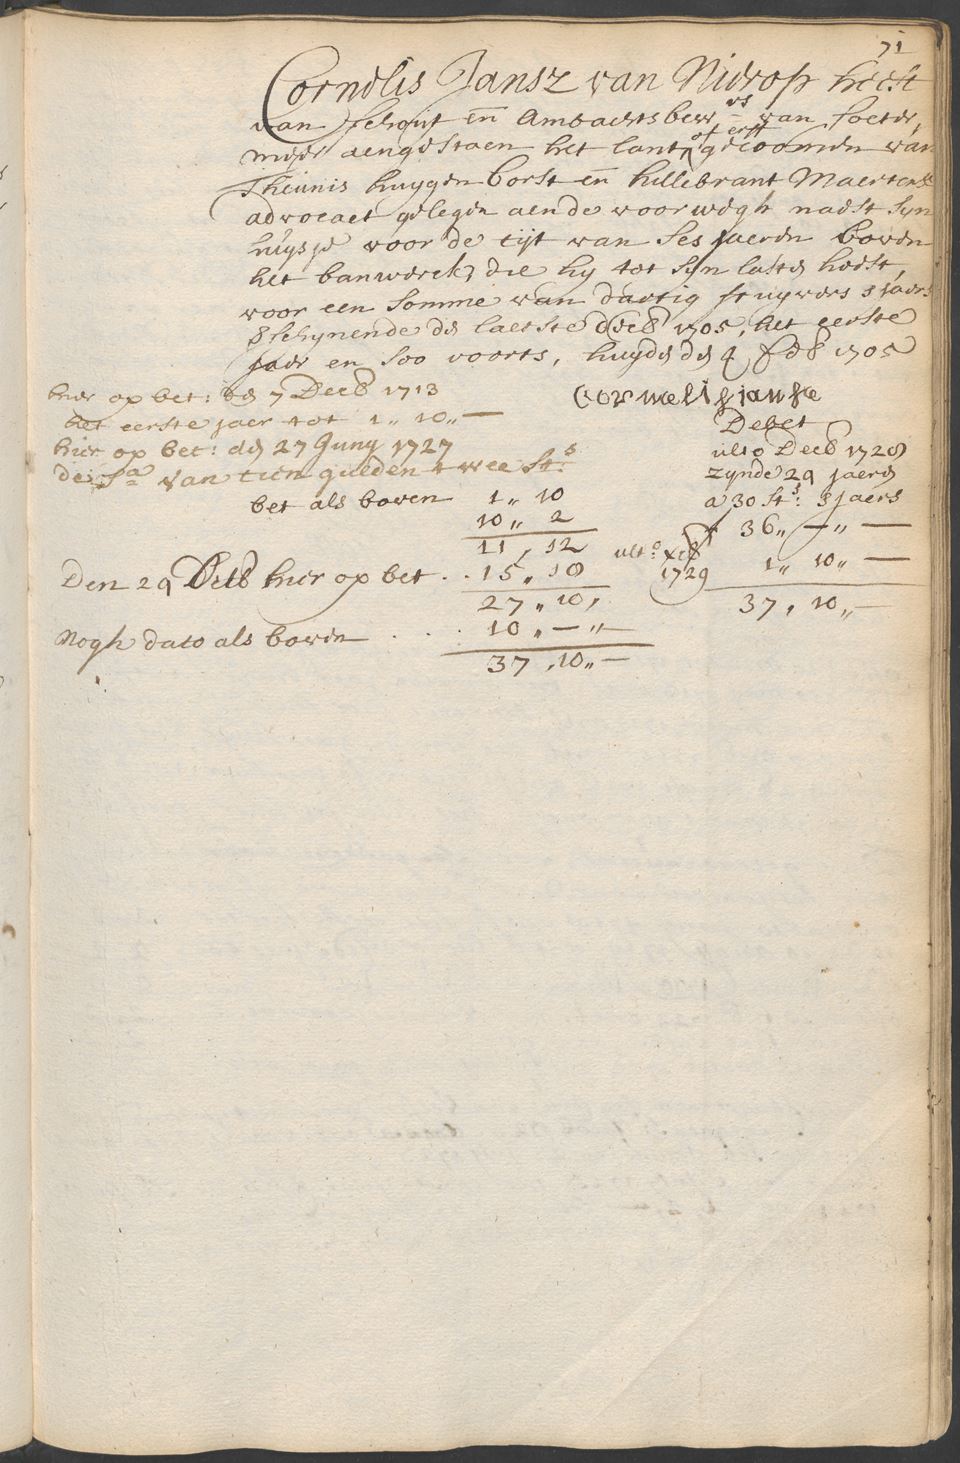 71
Cornelis Jansz van Nierop heeft
van schout en Ambachtsbewrs van soeter,
meer aengestaen het lant of erff gecoomen van
Theunis huygen Corst en hillebrant Maertensz
advocaet gelegen aende voorwegh naest syn
huysje voor de tijt van ses jaeren boven
het banwerck, die hy tot syn laste heeft,
voor een somme van dartig stuyvers sjaers
verschynende de laetste Dec8 1705, het eerste
jaer en soo voorts, huyde de 4 Feb 1705
Cornelis janse
hier op bet: de 7 Dec8 1713
het eerste jaer tot 1 „ 10 „ —
hier op bet: de 27 Juny 1727
de Sa van tien gulden twee Sts
bet als boven 1 „ 10
10 „ 2
11 , 12
Den 29 Dec8 hier op bet . . 15 „ 18
27 „ 10 ,
Nogh dato als boven . . . 10 „ — „ —
37 , 10 „ —
Debet
ulto Dec8 1728
zynde 24 jaere
a 30 Sts: sjaers
f 36 „ — „ —
ulto: Xe8 1729 1 „ 10 „ —
37 , 10 „ —